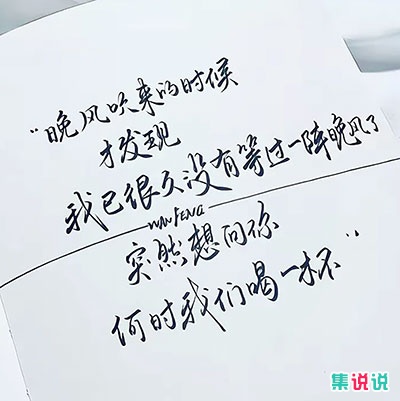 “晚风吹来的时候
才发现
我已很久没有等过一阵晚风了
WAN FENG
突然想问你
何时我们喝一杯”
集说说